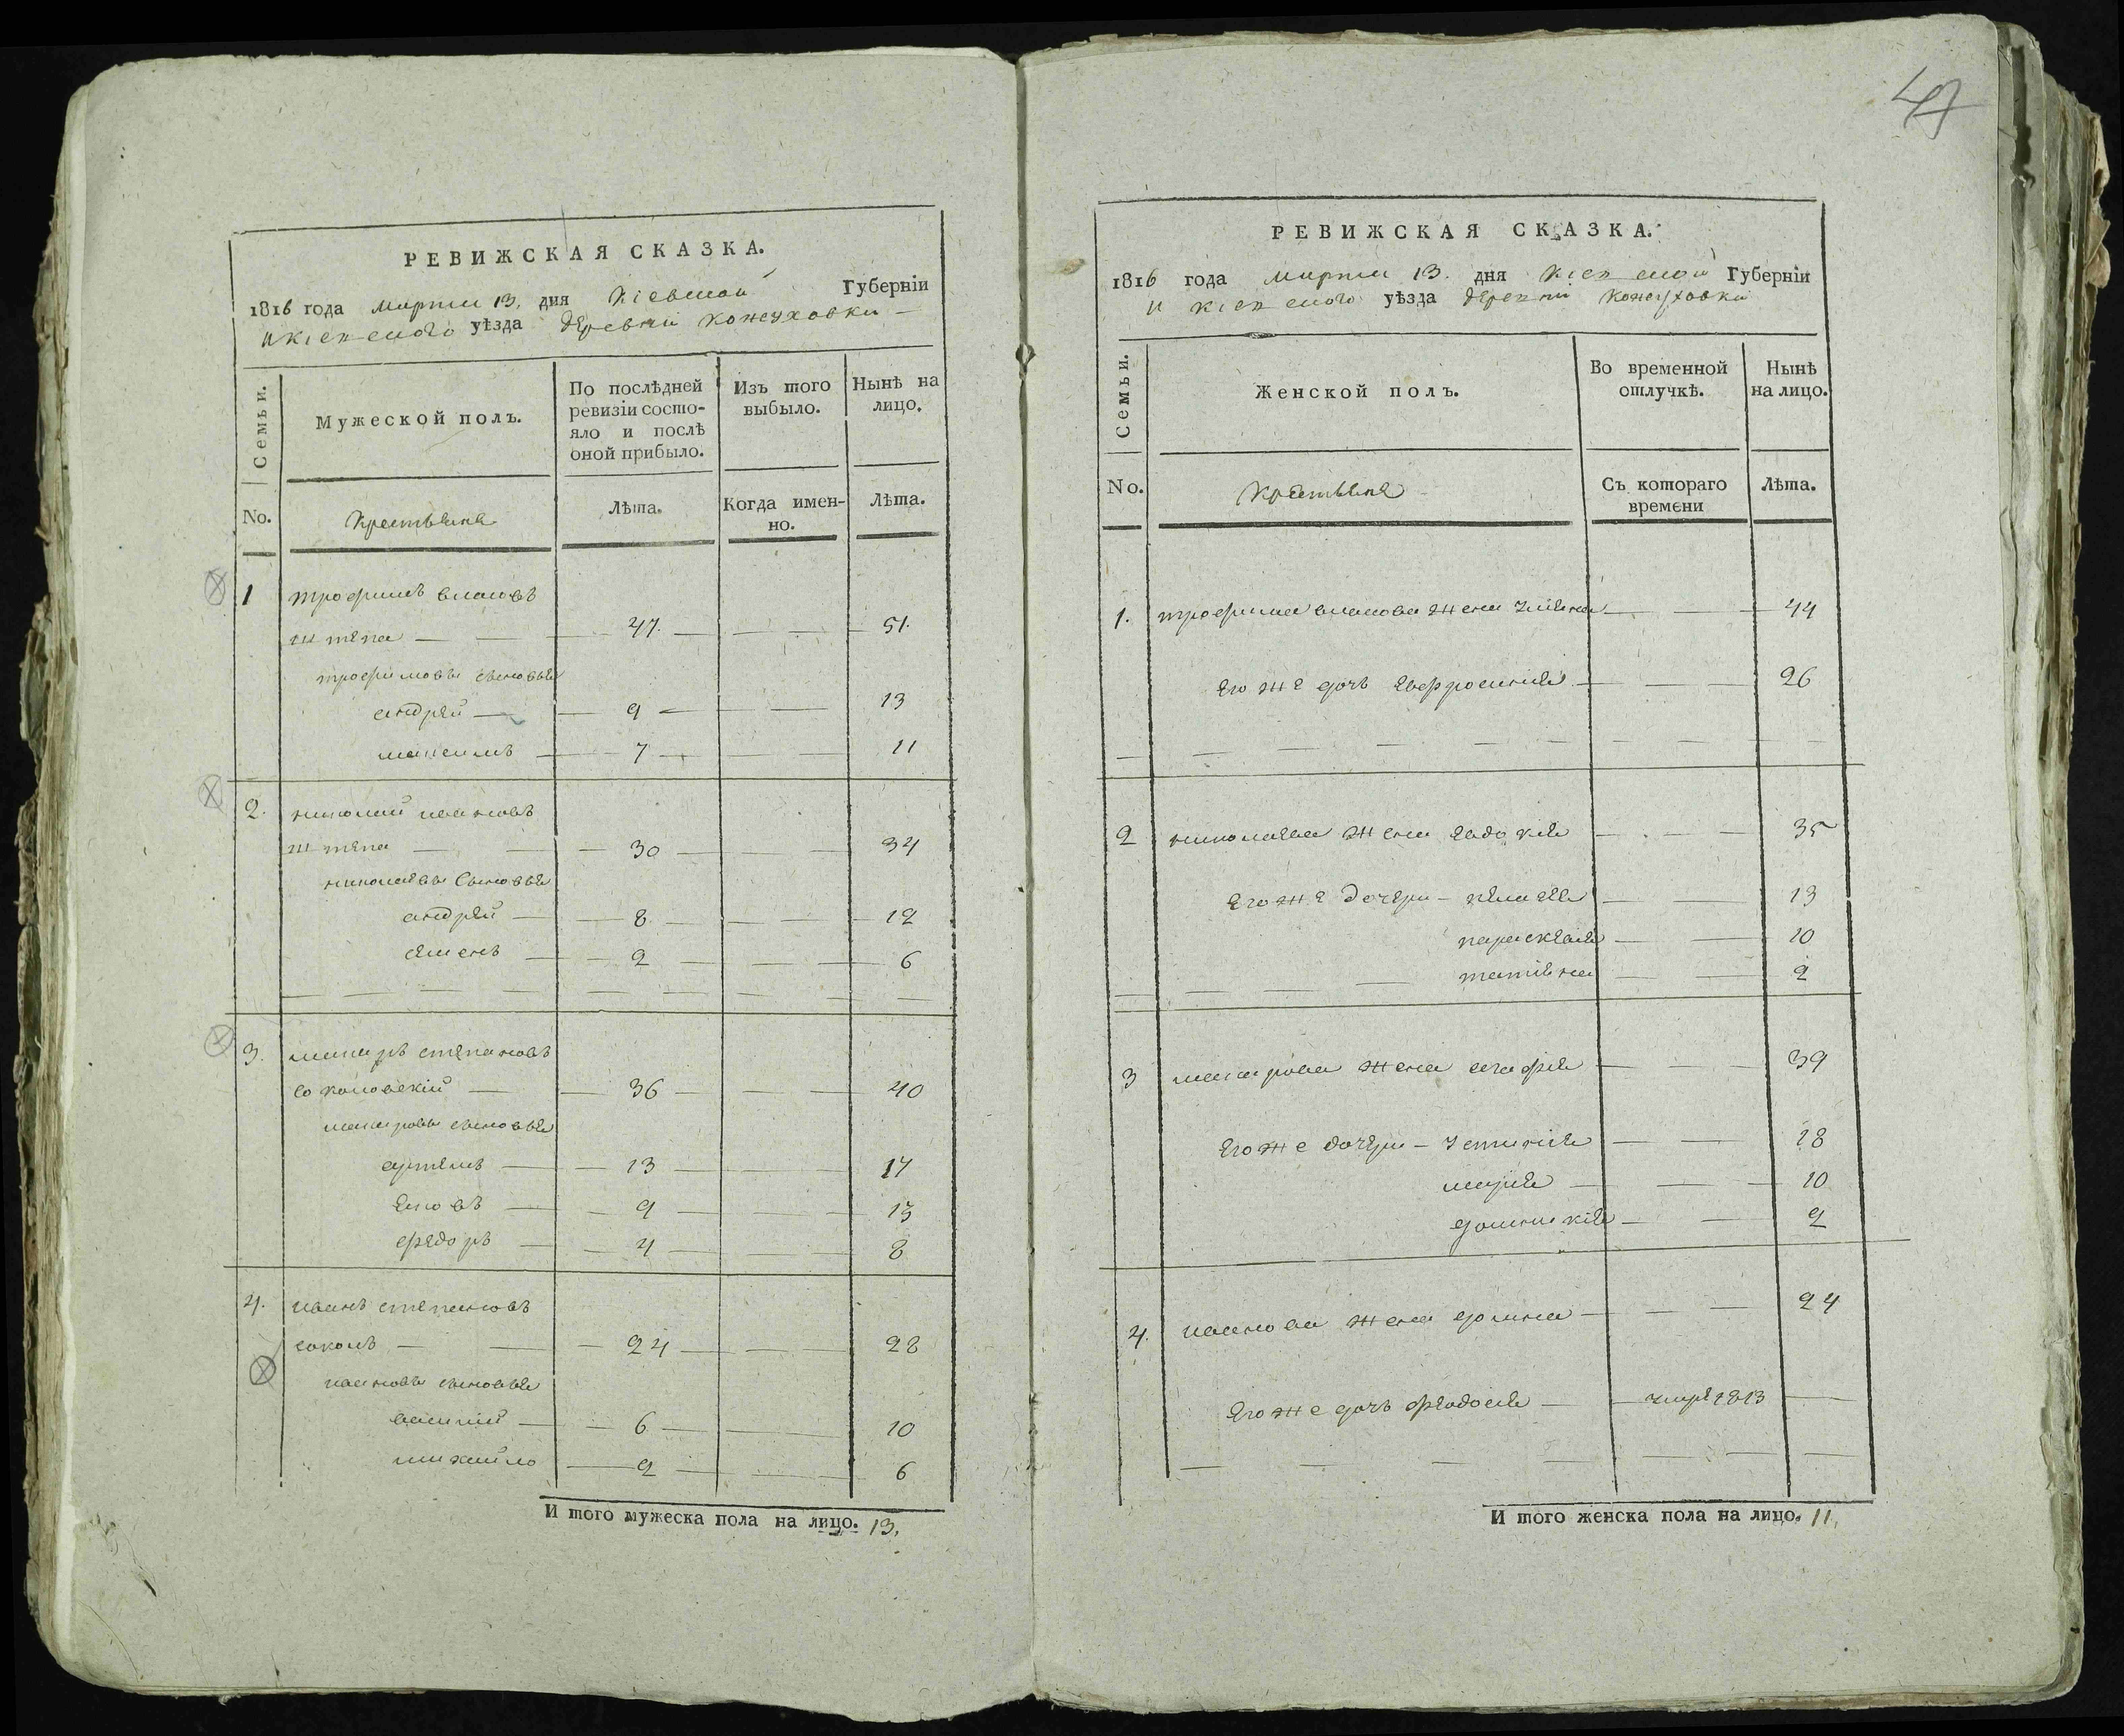 47
РЕВИЖСКАЯ СКАЗКА.
1816 года марта 13. дня Кіевской Губерніи
и Кіевского уѣзда деревни Кожуховки
Семьи.
Мужеской полъ.
По послѣдней ревизіи состо-
яло и послѣ
оной прибыло.
Изъ того
выбыло.
Нынѣ на
лицо.
No.
Крестьяне
Лѣта.
Когда имен-
но.
Лѣта.
1 трофимъ власовъ
штепа 47. 51.
трофимовы сыновья
андрей 9 13
максимъ 7 11
2. николай ивановъ
штепа 30 34
николаевы сыновья
андрей 8 12
семенъ 2 6
3. макаръ степановъ
соколовскій 36 40
макаровы сыновья
артемъ 13 17
яковъ 9 13
федоръ 4 8
4. иванъ степановъ
соколъ 24 28
ивановы сыновья
василій 6 10
михайло 2 6
И того мужеска пола на лицо. 13.
РЕВИЖСКАЯ СКАЗКА.
1816 года марта 13. дня Кіевской Губерніи
и Кіевского уѣзда деревни Кожуховки
Семьи.
Женской полъ.
Во временной
отлучкѣ.
Нынѣ
на лицо.
No.
Крестьяне
Съ котораго
времени
Лѣта.
1. трофима власова жена уліяна 44
его же дочь евфросинія 26
2 николаева жена евдокія 35
его же дочери – пелагея 13
параскевія 10
татіяна 2
3 макарова жена агафія 39
его же дочери – устинія 18
марія 10
домникія 2
4. иванова жена домна 24
его же дочь феодосія 1813
И того женска пола на лицо. 11.